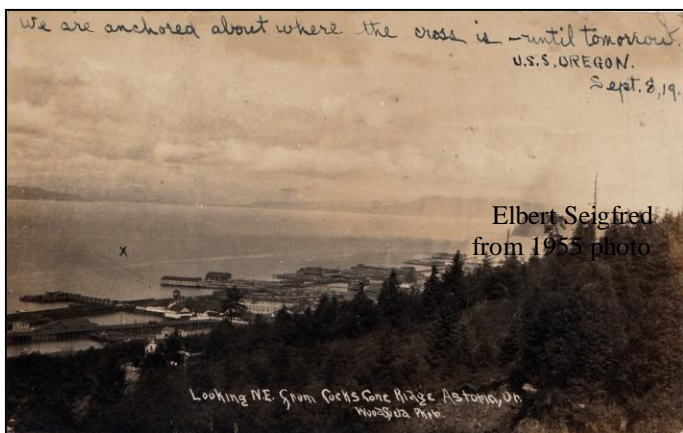 We are anchored about where the cross is - until tomorrow.
U.S.S. OREGON.
Sept. 8, 19.
Elbert Seigfred
from 1955 photo
X
Looking N.E. from Cocks Cone Ridge Astoria, Or.
Woodfield Phot.